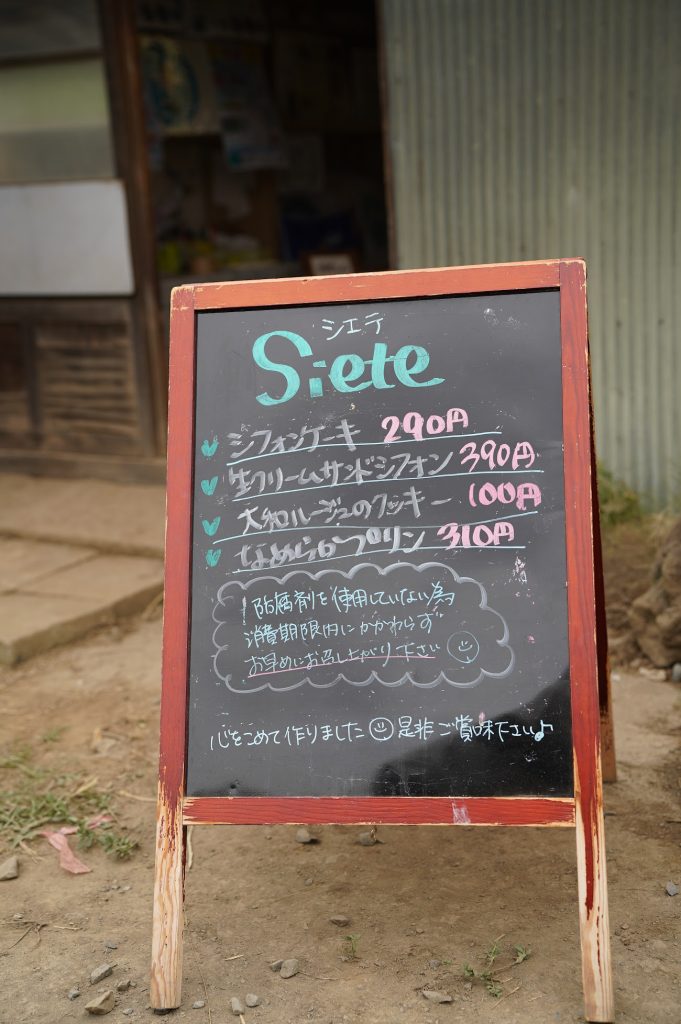 シエテ
Siete
シフォンケーキ 290円
生クリームサンドシフォン 390円
大和ルージュのクッキー 100円
なめらかプリン 310円
！防腐剤を使用していない為
消費期限内にかかわらず
お早めにお召し上がり下さい
心をこめて作りました 是非ご賞味下さい♪